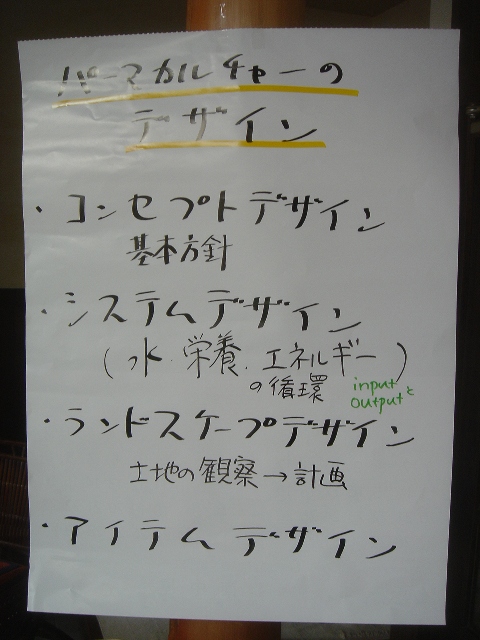 パーマカルチャーの
デザイン
・コンセプトデザイン
基本方針
・システムデザイン
(水・栄養・エネルギー)
の循環
inputと
output
・ランドスケープデザイン
土地の観察→計画
・アイテムデザイン